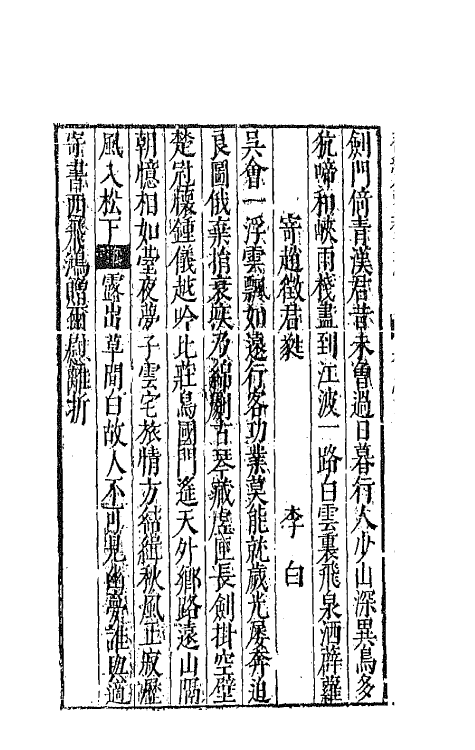 劍門倚青漢君昔未曾過日暮行人少山深異鳥多
猿啼和峽雨棧盡到江波一路白雲裏飛泉洒薜蘿
寄趙徵君蕤　李白
吳會一浮雲飄如遠行客功業莫能就歲光屢奔迫
良圖俄棄捐衰疾乃綿劇古琴藏虛匣長劍掛空壁
楚冠懷鍾儀越吟比莊舄國門遙天外鄉路遠山隔
朝憶相如臺夜夢子雲宅旅情方結緝秋風正寂歷
風入松下露出草間白故人不可見幽夢誰與適
寄書西飛鴻贈爾慰離析